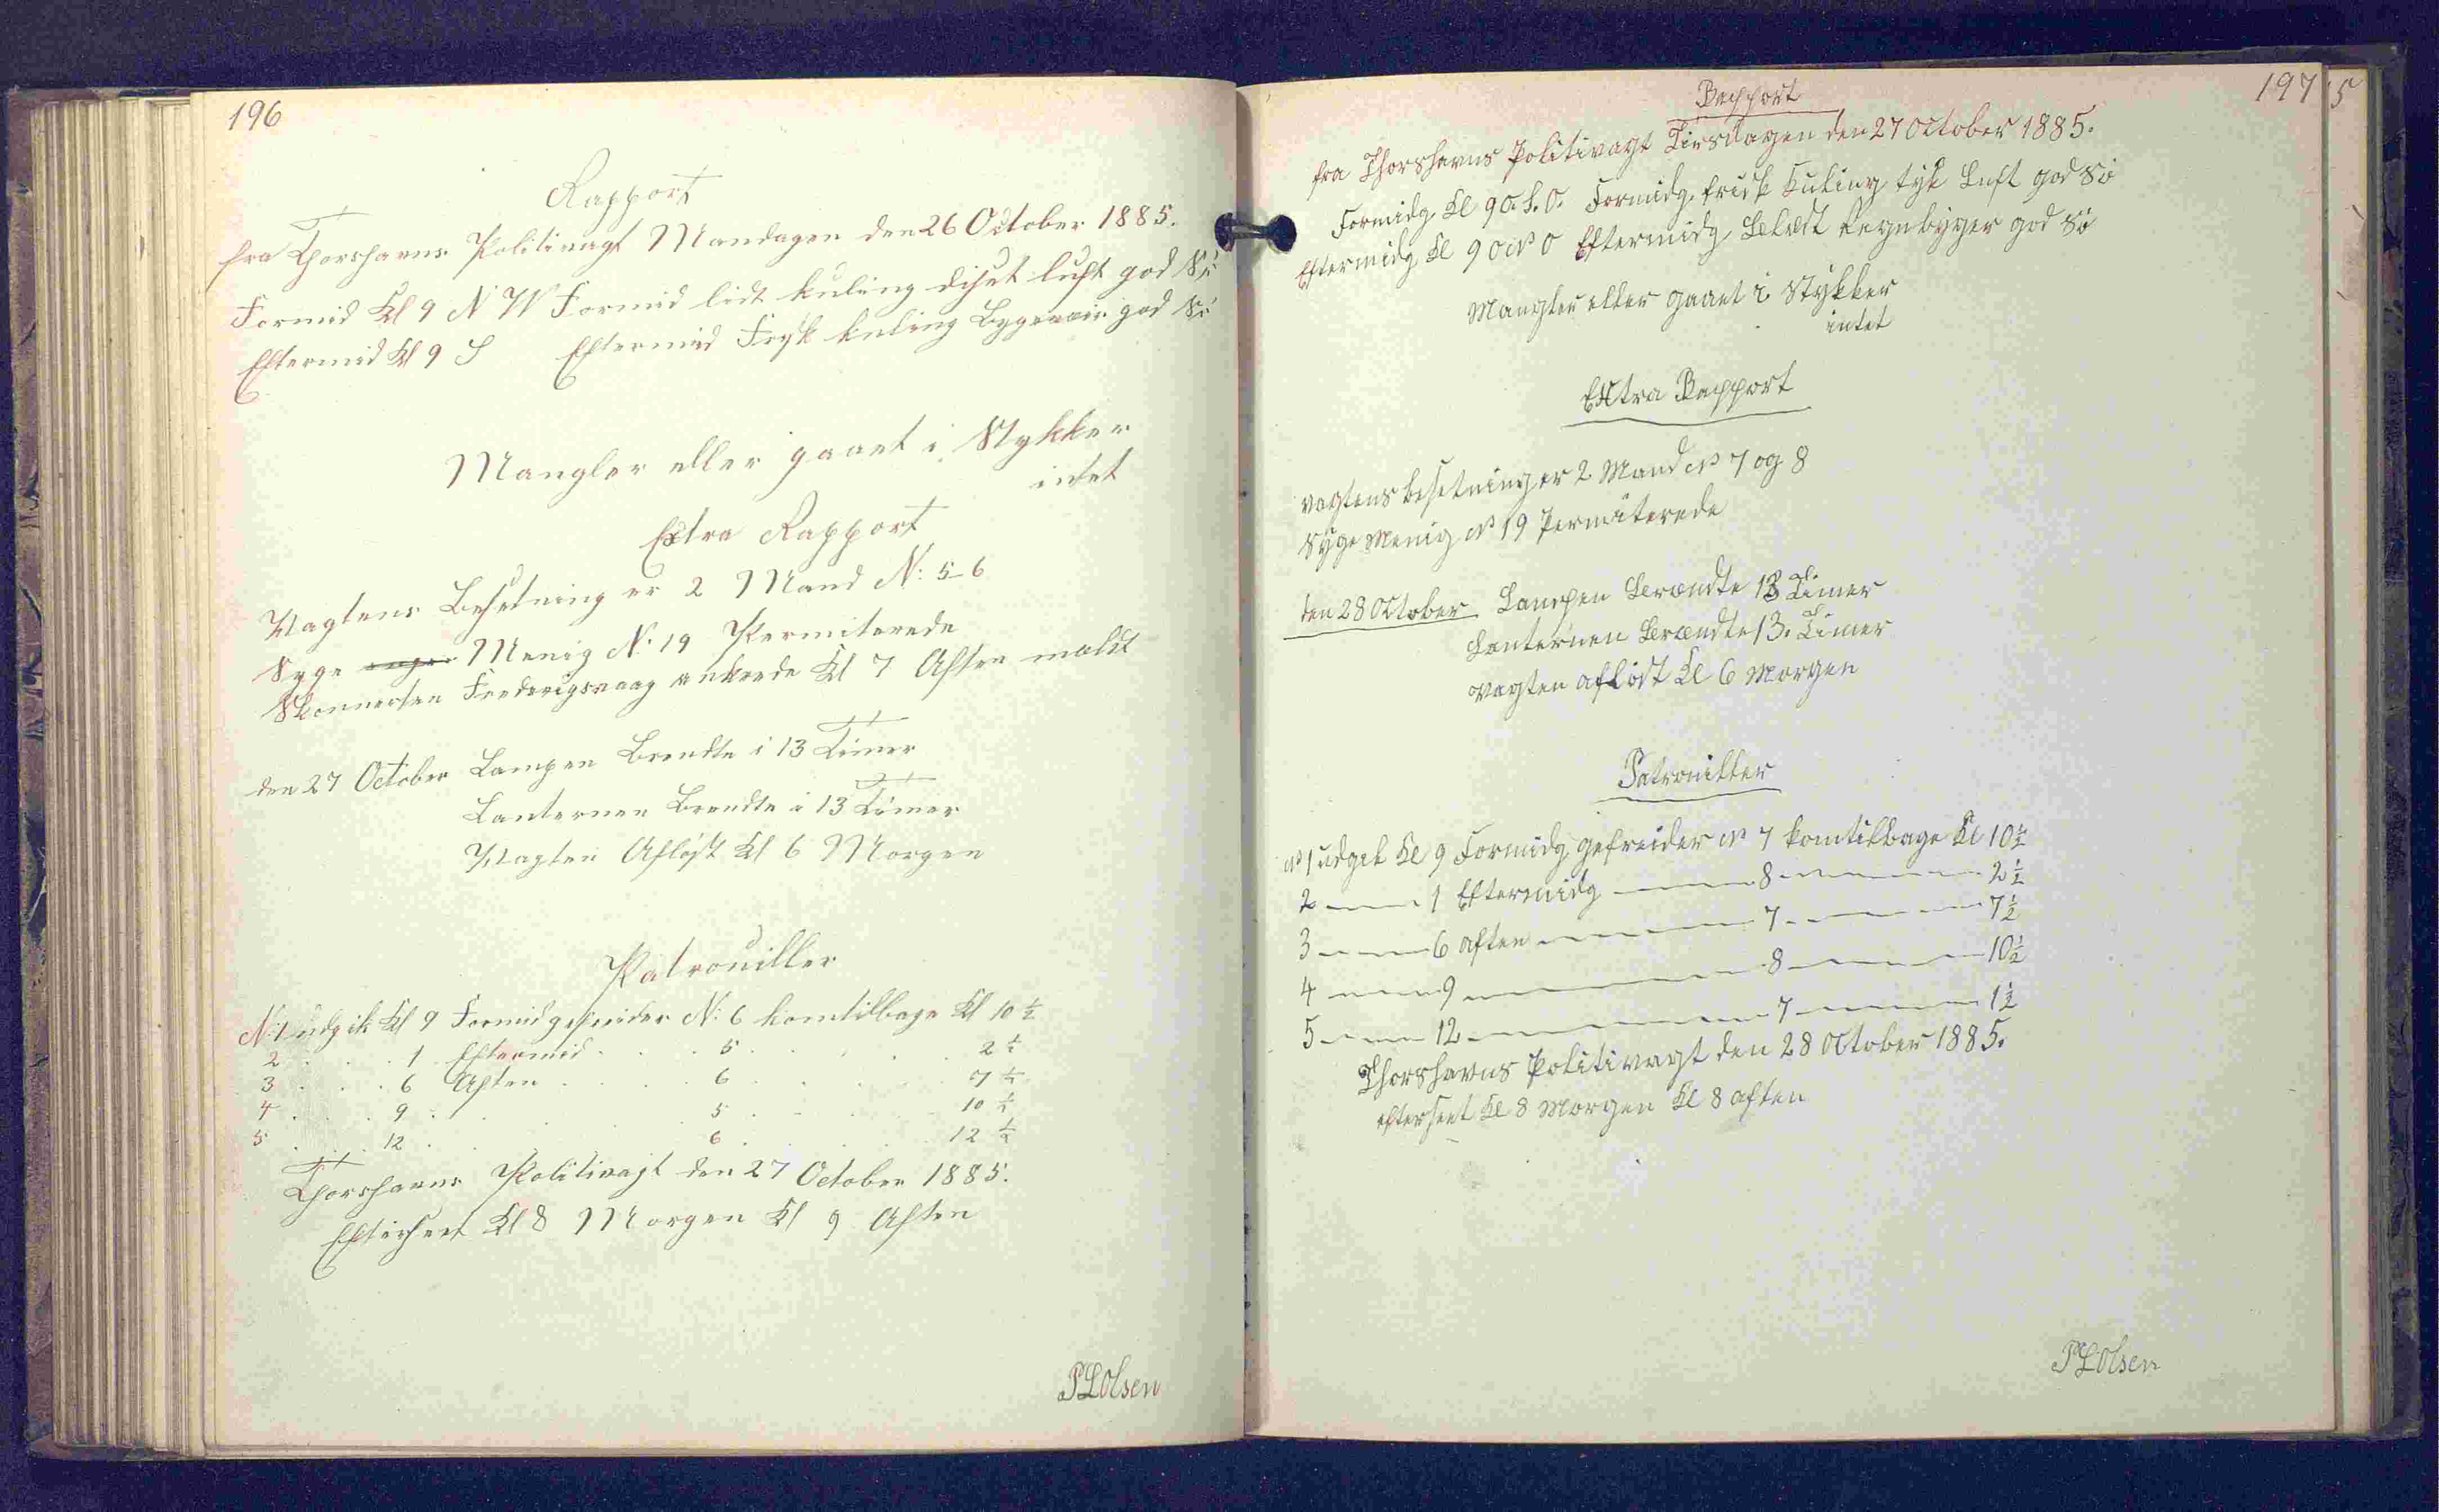 196
Rapport
fra Thorshavns Politivagt Mandagen den 26 October 1885.
Formid Kl 9 N W Formid lidt kuling diset luft god Sö
Eftermid Kl 9 S Eftermid Frysk kuling Bygevair god Sö
Mangler eller gaaet i Stykker
intet
Extra Rapport
Vagtens Besetning er 2 Mand N: 5-6
Syge Menig N. 19 Permiterede
Skonnerten Frederigsvaag ankrede Kl 7 Aften
den 27 October Lampen Brendte i 13 Timer
Lanternen Brendte i 13 Timer
Vagten Afløst Kl 6 Morgen
Patrouiller
N: 1 udgik Kl 9 Formid gefreider N: 6 kom tilbage Kl 10 ½
2 . . . 1 Eftermid . . . 5 . . . . 2 ½
3 . . . 6 Aften . . . . 6 . . . . 7 ½
4 . . . 9 . . . . 5 . . . . 10 ½
5 . . . 12 . . . . 6 . . . . 12 ½
Thorshavns Politivagt den 27 October 1885.
Efterseet Kl 8 Morgen Kl 9 Aften
PLOlsen
197
5
Rapport
fra Thorshavns Politivagt Tirsdagen den 27 October 1885.
Formidg. Kl 9 O.S.O. Formidg. frisk Kuling tyk Luft god Sö
Eftermidg Kl 9 Eftermidg Regnbyger god Sö
Mangler eller gaaet i Stykker
intet
Extra Rapport
vagtens besetning er 2 Mand No 7 og 8
Syge Menig No 19 Permiterede
den 28 October Lampen Brændte 13 Timer
Lanternen Brændte 13. Timer
vagten aflöst Kl 6 Morgen
Patrouiller
No 1 udgik Kl 9 Formidg gefreider No 7 kom tilbage Kl 10½
2 — 1 Eftermidg — 8 — 2½
3 — 6 aften — 7 — 7½
4 — 9 — 8 — 10½
5 — 12 — 7 — 1½
Thorshavns Politivagt den 28 October 1885.
efterseet Kl 8 Morgen Kl 8 aften
PLOlsen